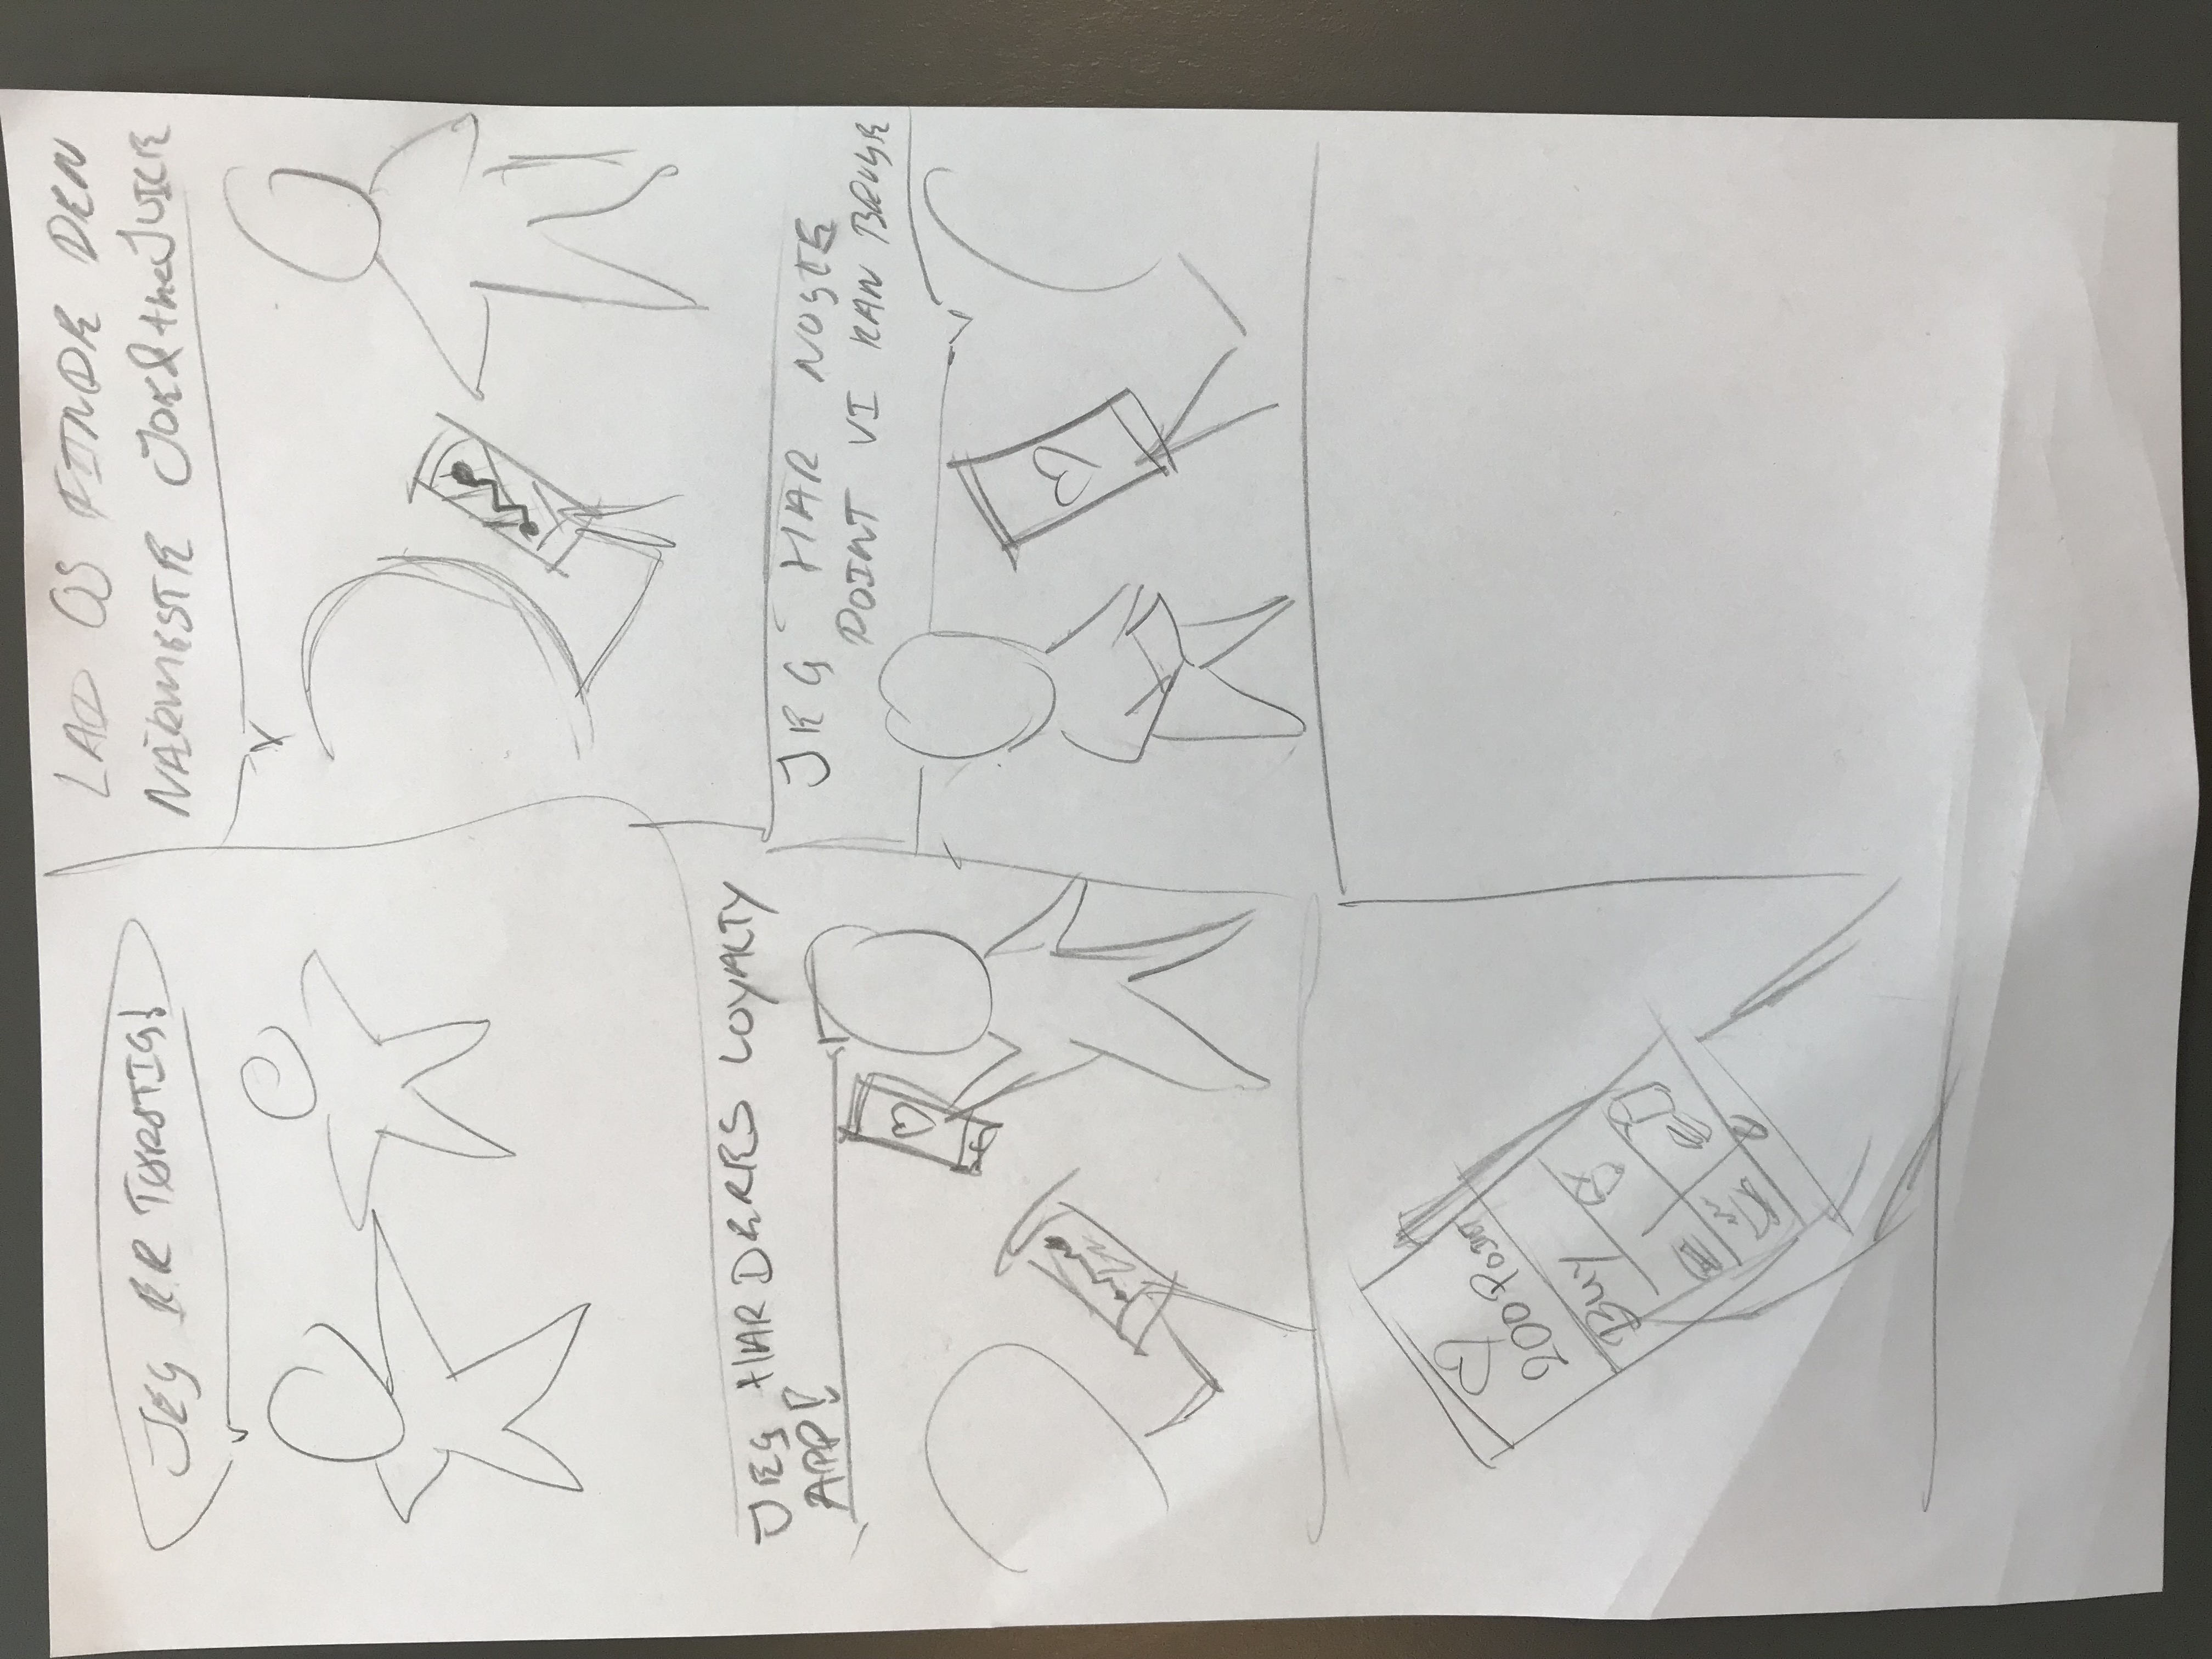 JEG ER TØRSTIG!
LAD OS FINDE DEN
NÆRMESTE JOE & the JUICE
JEG HAR DERES LOYALTY
APP!
JEG HAR NOGLE
POINT VI KAN BRUGE
200 POINT
BUY